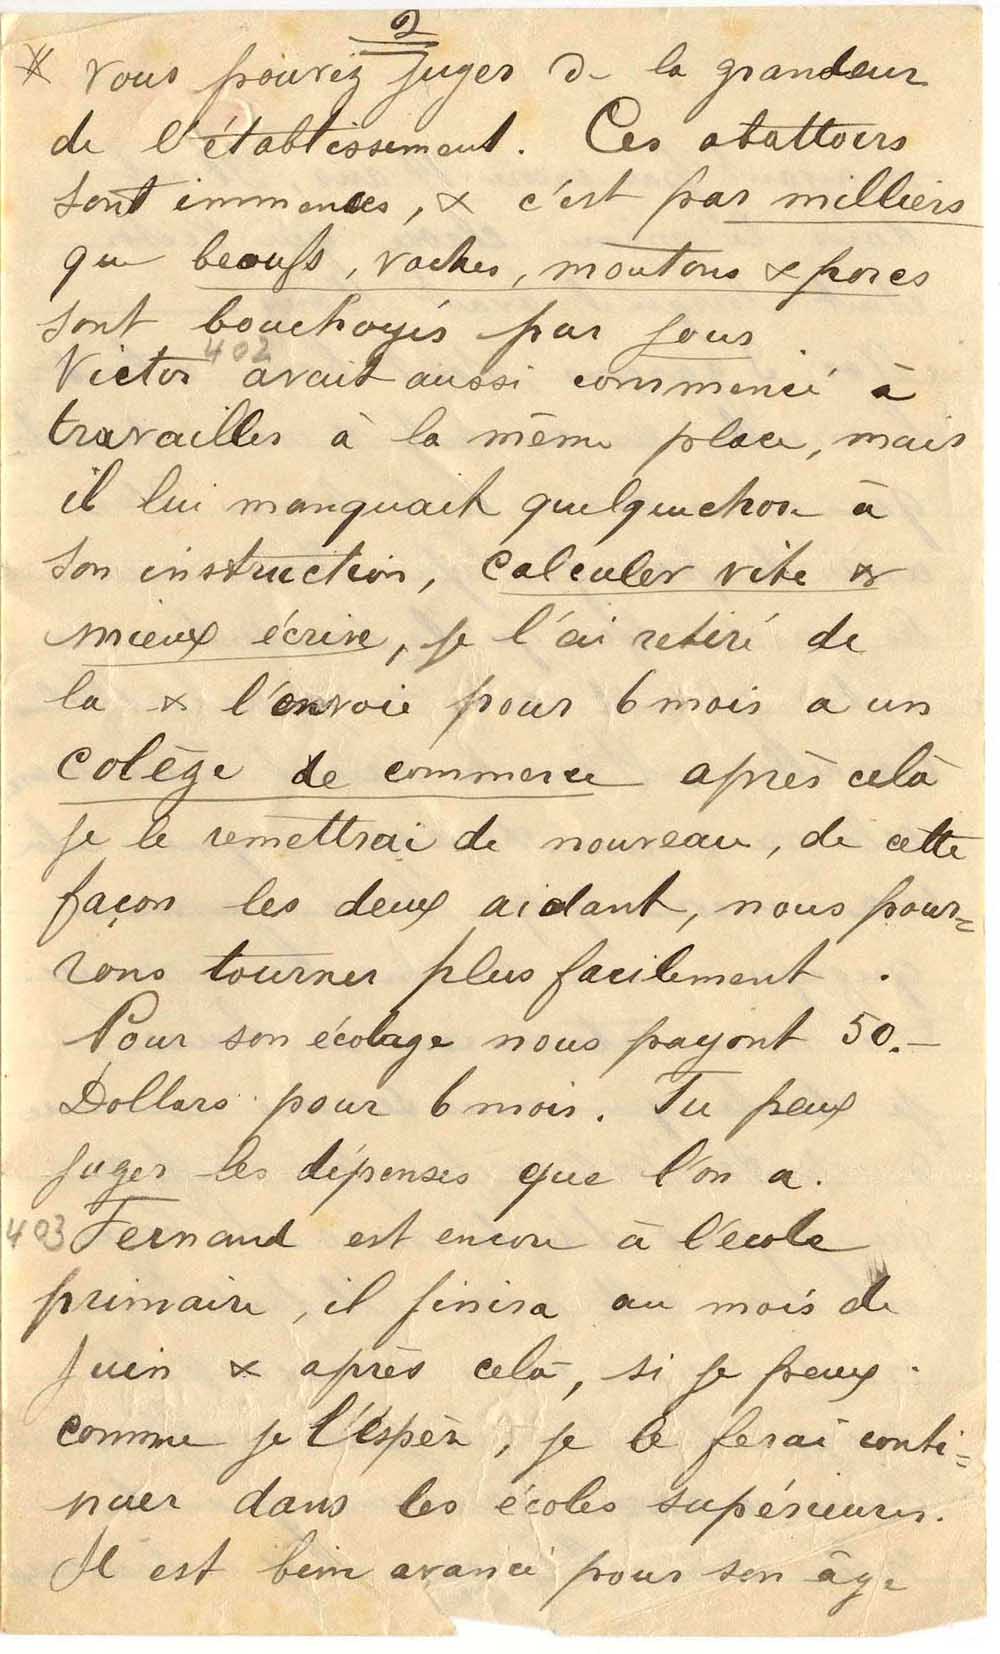 2
* Vous pouvez juger de la grandeur
de l'établissement. Ces abattoirs
sont immenses, & c'est par milliers
que beoufs, vaches, moutons & porcs
sont bouchoyés par jour
402
Victor avait aussi commencé à
travailler à la même place, mais
il lui manquait quelquechose à
son instruction, calculer vite &
mieux écrire, je l'ai retiré de
la & l'envoie pour 6 mois a un
colège de commerce après celà
je le remettrai de nouveau, de cette
façon les deux aidant, nous pour=
rons tourner plus facilement.
Pour son écolage nous payont 50.-
Dollars pour 6 mois. Tu peux
juger les dépenses que l'on a.
403 Fernand est encore à l'école
primaire, il finira au mois de
Juin & après celà, si je peux
comme je l'éspère, je le ferai conti=
nuer dans les écoles supérieures.
Il est bien avancé pour son âge